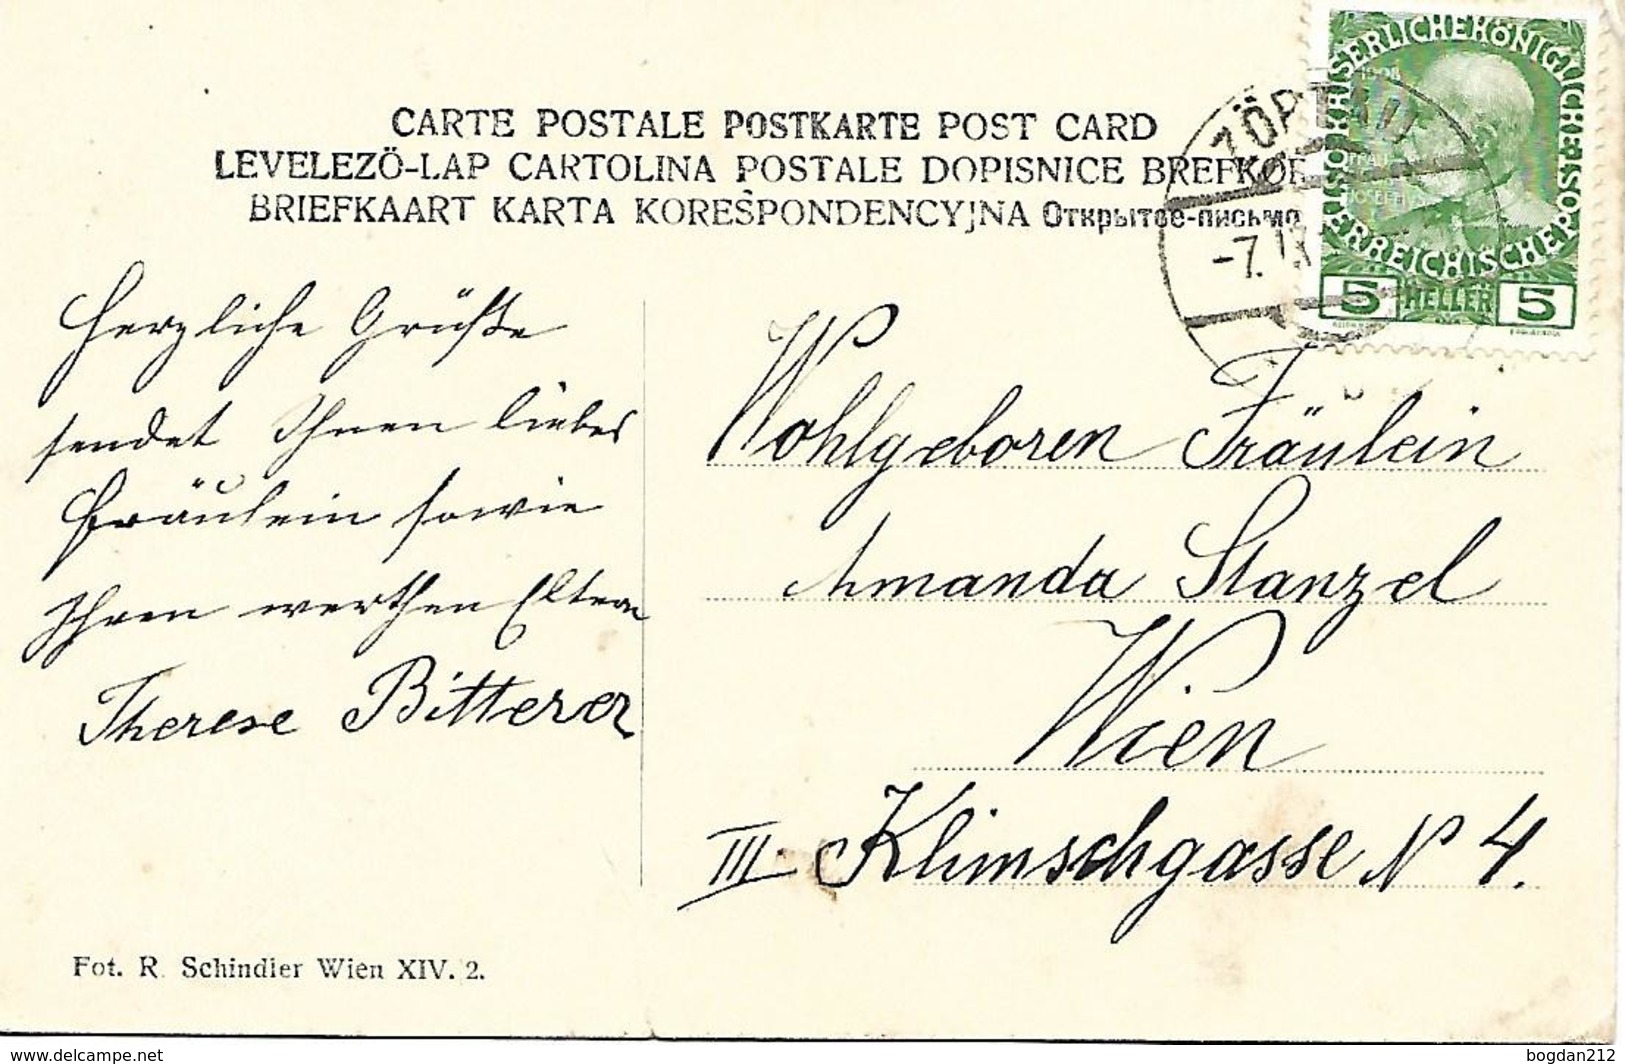 CARTE POSTALE POSTKARTE POST CARD
LEVELEZŐ-LAP CARTOLINA POSTALE DOPISNICE BREFKOR
BRIEFKAART KARTA KORESPONDENCYJNA Открытое-письмо
KAISERLICHE KÖNIGLICHE ÖSTERREICHISCHE POST
1908
5 HELLER 5
ZÖPTAU
-7.
Herzliche Grüße
sendet Ihnen liebes
Fräulein sowie
Ihren werthen Eltern
Therese Bitterer
Wohlgeboren Fräulein
Amanda Stanzel
Wien
III. Klimschgasse N 4.
Fot. R. Schindler Wien XIV. 2.
www.delcampe.net
bogdan212